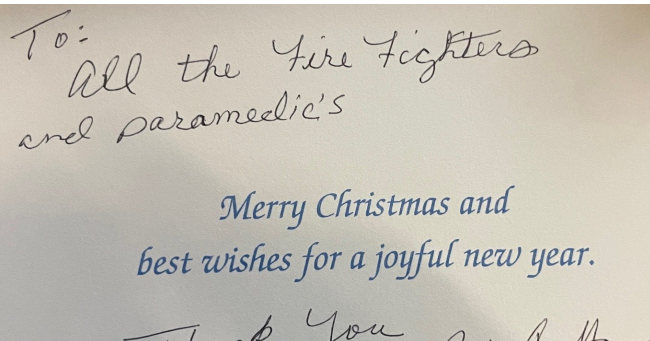 To:
All the Fire Fighters
and paramedic's
Merry Christmas and
best wishes for a joyful new year.
Thank You